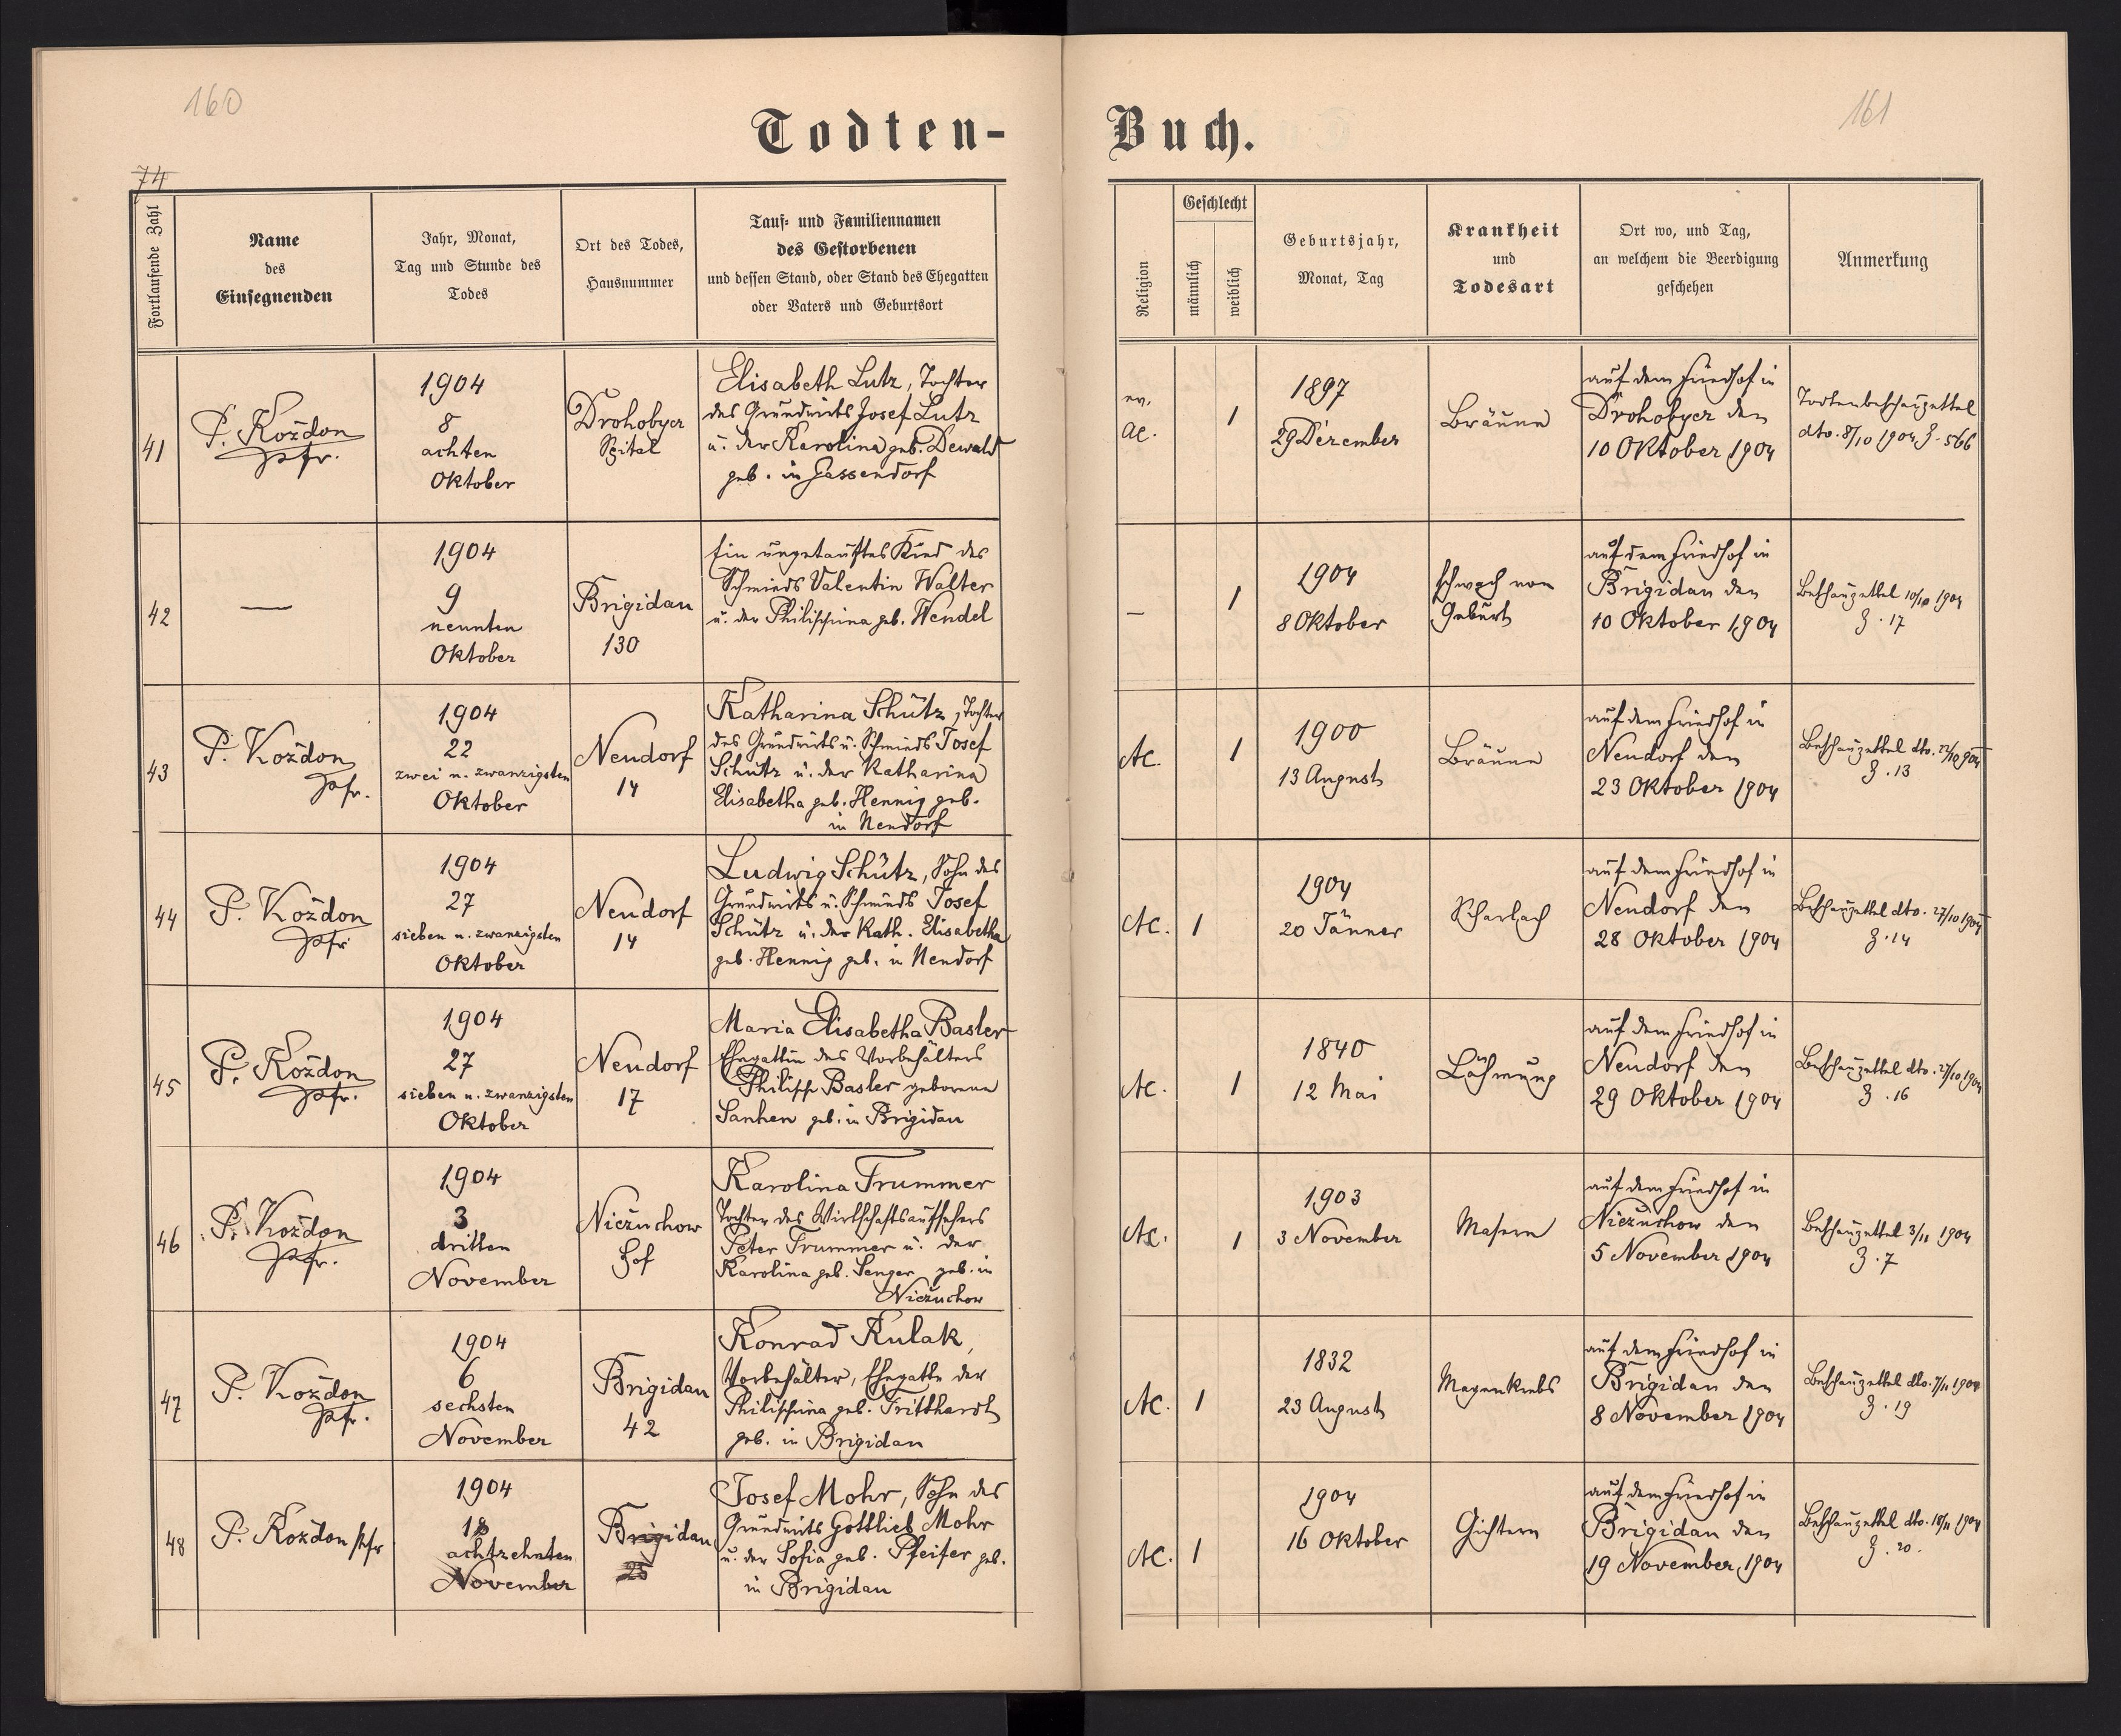 160
161
Todten-Buch.
74
Fortlaufende Zahl
Name
des
Einsegnenden
Jahr, Monat,
Tag und Stunde des
Todes
Ort des Todes,
Hausnummer
Tauf- und Familiennamen
des Gestorbenen
und dessen Stand, oder Stand des Ehegatten
oder Vaters und Geburtsort
Religion
Geschlecht
männlich
weiblich
Geburtsjahr,
Monat, Tag
Krankheit
und
Todesart
Ort wo, und Tag,
an welchem die Beerdigung
geschehen
Anmerkung
41
P. Koždon
Pfr.
1904
8
achten
Oktober
Drohobycz
Spital
Elisabeth Lutz, Tochter
des Grundwirts Josef Lutz
u. der Karolina geb. Dewald
geb. in Gassendorf
ev.
AC.
1
1897
29 Dezember
Bräune
auf dem Friedhof in
Drohobycz den
10 Oktober 1904
Todtenbeschauzettel
dto. 8/10 1904 Z. 566
42
—
1904
9
neunten
Oktober
Brigidau
130
Ein ungetauftes Kind des
Schmieds Valentin Walter
u. der Philippina geb. Wendel
—
1
1904
8 Oktober
schwach von
Geburt
auf dem Friedhof in
Brigidau den
10 Oktober 1904
Beschauzettel 10/10 1904
Z. 17
43
P. Koždon
Pfr.
1904
22
zwei u. zwanzigsten
Oktober
Neudorf
14
Katharina Schütz, Tochter
des Grundwirts u. Schmieds Josef
Schütz u. der Katharina
Elisabetha geb. Hennig geb.
in Neudorf
AC.
1
1900
13 August
Bräune
auf dem Friedhof in
Neudorf den
23 Oktober 1904
Beschauzettel dto. 22/10 904
Z. 13
44
P. Koždon
Pfr
1904
27
sieben u. zwanzigsten
Oktober
Neudorf
14
Ludwig Schütz, Sohn des
Grundwirts u. Schmieds Josef
Schütz u. der Kath. Elisabetha
geb. Hennig geb. in Neudorf
AC.
1
1904
20 Jänner
Scharlach
auf dem Friedhof in
Neudorf den
28 Oktober 1904
Beschauzettel dto. 27/10 1904
Z. 14
45
P. Koždon
Pfr.
1904
27
sieben u. zwanzigsten
Oktober
Neudorf
17
Maria Elisabetha Basler
Ehegattin des Vorbehälters
Philipp Basler geborene
Sanken geb. in Brigidau
AC.
1
1840
12 Mai
Lähmung
auf dem Friedhof in
Neudorf den
29 Oktober 1904
Beschauzettel dto. 27/10 1904
Z. 16
46
P. Koždon
Pfr.
1904
3
dritten
November
Nieżuchow
Hof
Karolina Trummer
Tochter des Wirtschaftsaufsehers
Peter Trummer u. der
Karolina geb. Senger geb. in
Nieżuchow
AC.
1
1903
3 November
Masern
auf dem Friedhof in
Nieżuchow den
5 November 1904
Beschauzettel 3/11 1904
Z. 7
47
P. Koždon
Pfr.
1904
6
sechsten
November
Brigidau
42
Konrad Kulak,
Vorbehälter, Ehegatte der
Philippina geb. Tritthardt
geb. in Brigidau
AC.
1
1832
23 August
Magenkrebs
auf dem Friedhof in
Brigidau den
8 November 1904
Beschauzettel dto. 7/11 1904
Z. 19
48
P. Koždon Pfr
1904
18
achtzehnten
November
Brigidau
Josef Mohr, Sohn des
Grundwirts Gottlieb Mohr
u. der Sofia geb. Pfeifer geb.
in Brigidau
AC.
1
1904
16 Oktober
Gichtern
auf dem Friedhof in
Brigidau den
19 November 1904
Beschauzettel dto. 18/11 1904
Z. 20.